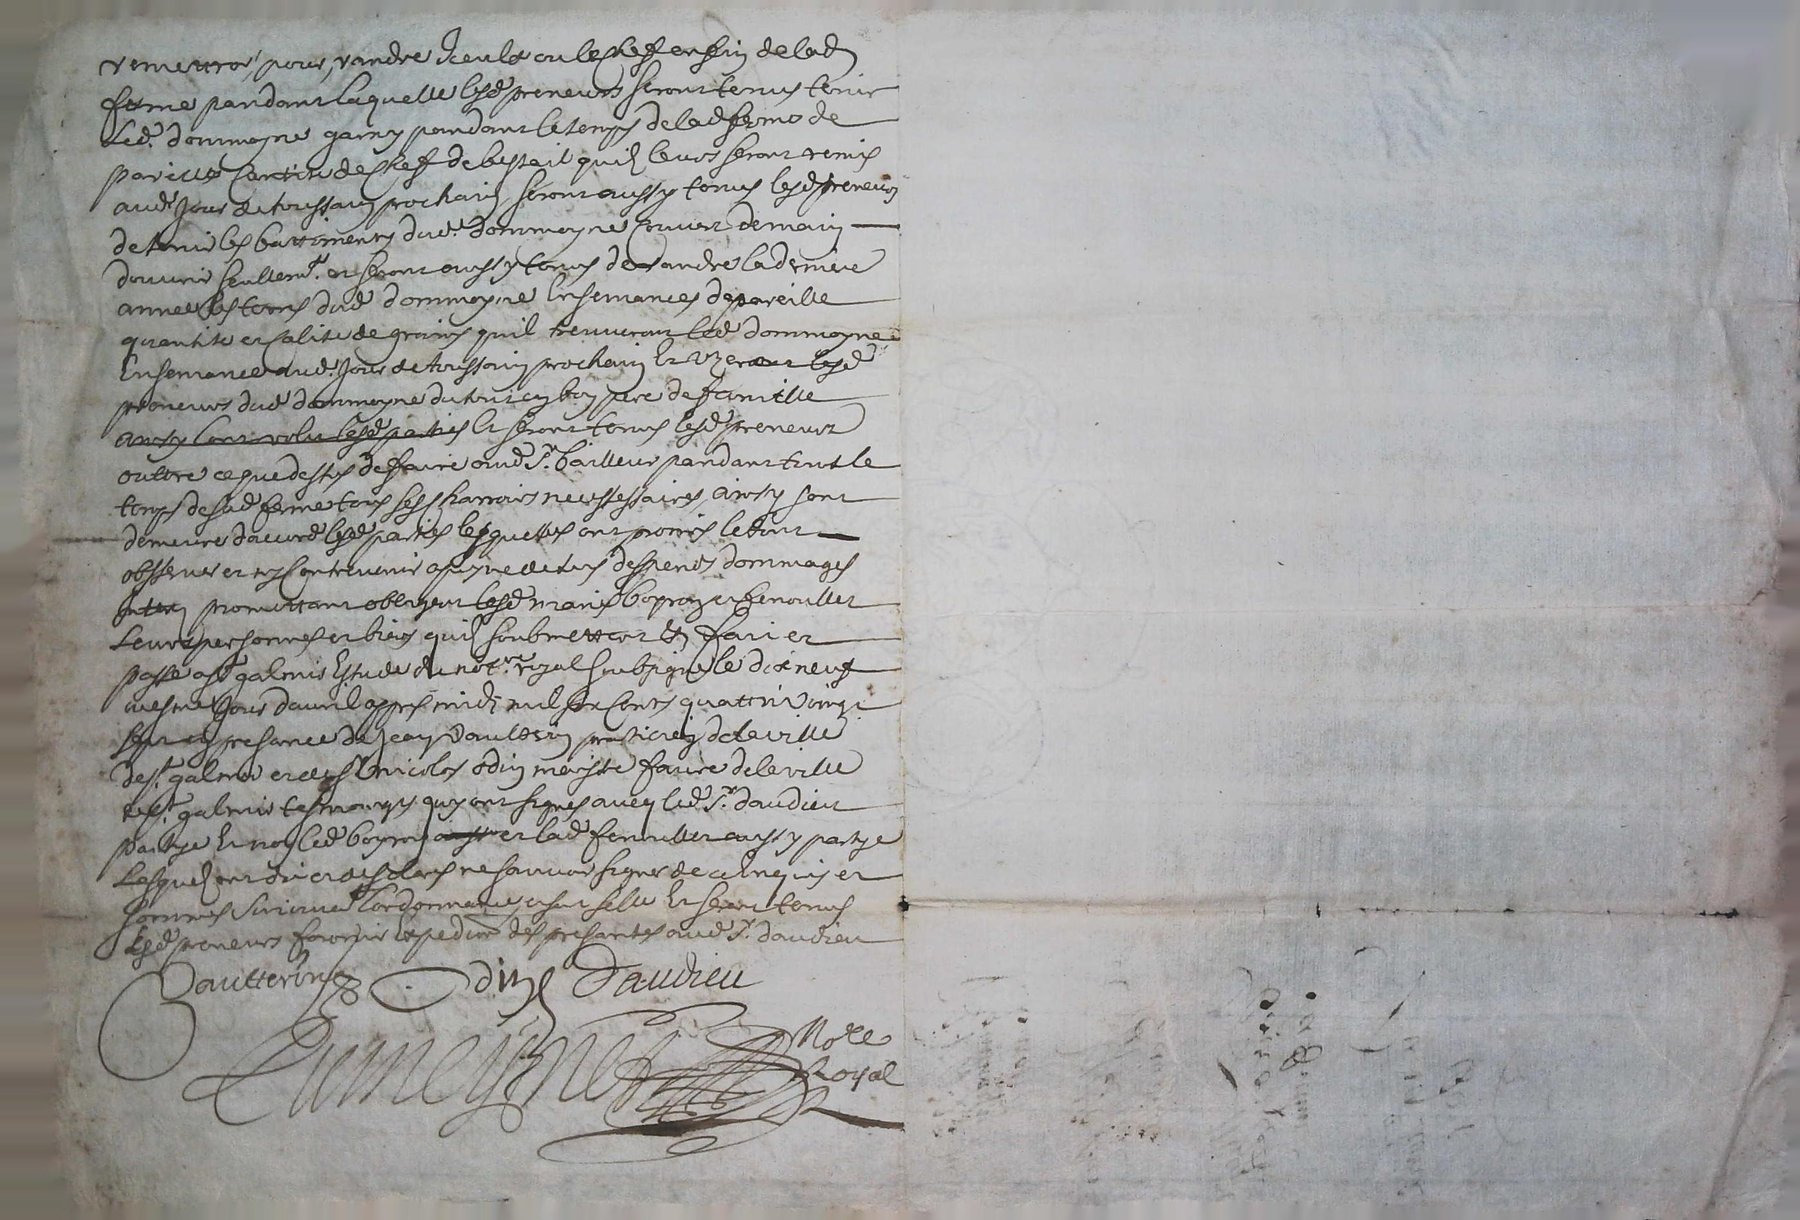 remettre, pour randre iceulx ou le chef en fin de lad
ferme pandant laquelle lesd preneurs seront tenus tenir
Led. dommeyne garny pandant le temps de lad ferme de
pareille de chef de bestail quil leurs seront remis
aud jour de toussain prochain seront aussy tenus lesd preneurs
de tenir les battiments dud. dommeyne couvert de main
douvrier seullemt. et seront aussy tenus de randre la derniere
annee les terres dud dommeyne Ensemances de pareille
quantite et calite de grains quil treuveront led dommeyne
Ensemance aud. jour de toussain prochain Et uzeront lesd
preneurs dud dommeyne du tout en bon pere de famille
ainsy lont volu lesd parties Et seront tenus lesd preneurs
oultre ce que dessus de faire aud Sr. bailleur pandant tout le
temps de lad ferme tous ses charrois necessaires, ainsy sont
demeures daccord lesd parties lesquelles ont promis le tout
observer et ny contrevenir a peyne de tous despents dommages
promettant obligent lesd maries et fenoullet
Leurs personnes et biens quil soubmettent &c fait et
passe a St galmis Estude du notre royal soubsigne le dix neuf
viesme jour davril appres midi mil six cents quattre vingt
sept en presance de jean Vaultterin praticien de la ville
de St. galmis et de Sr nicolas Odin maistre de la ville
de St. galmis tesmoings quy ont signes avecq led Sr. daudieu
partye Et non led et lad fenoullet aussy partye
Lesquels ont dit et ne scavoir signer de ce enquis et
sommes suivant lordonnance Et seront tenus
Lesd preneurs fournir expedition des presantes aud Sr. daudieu
Vaultterin Odin Daudieu
Note
Royal